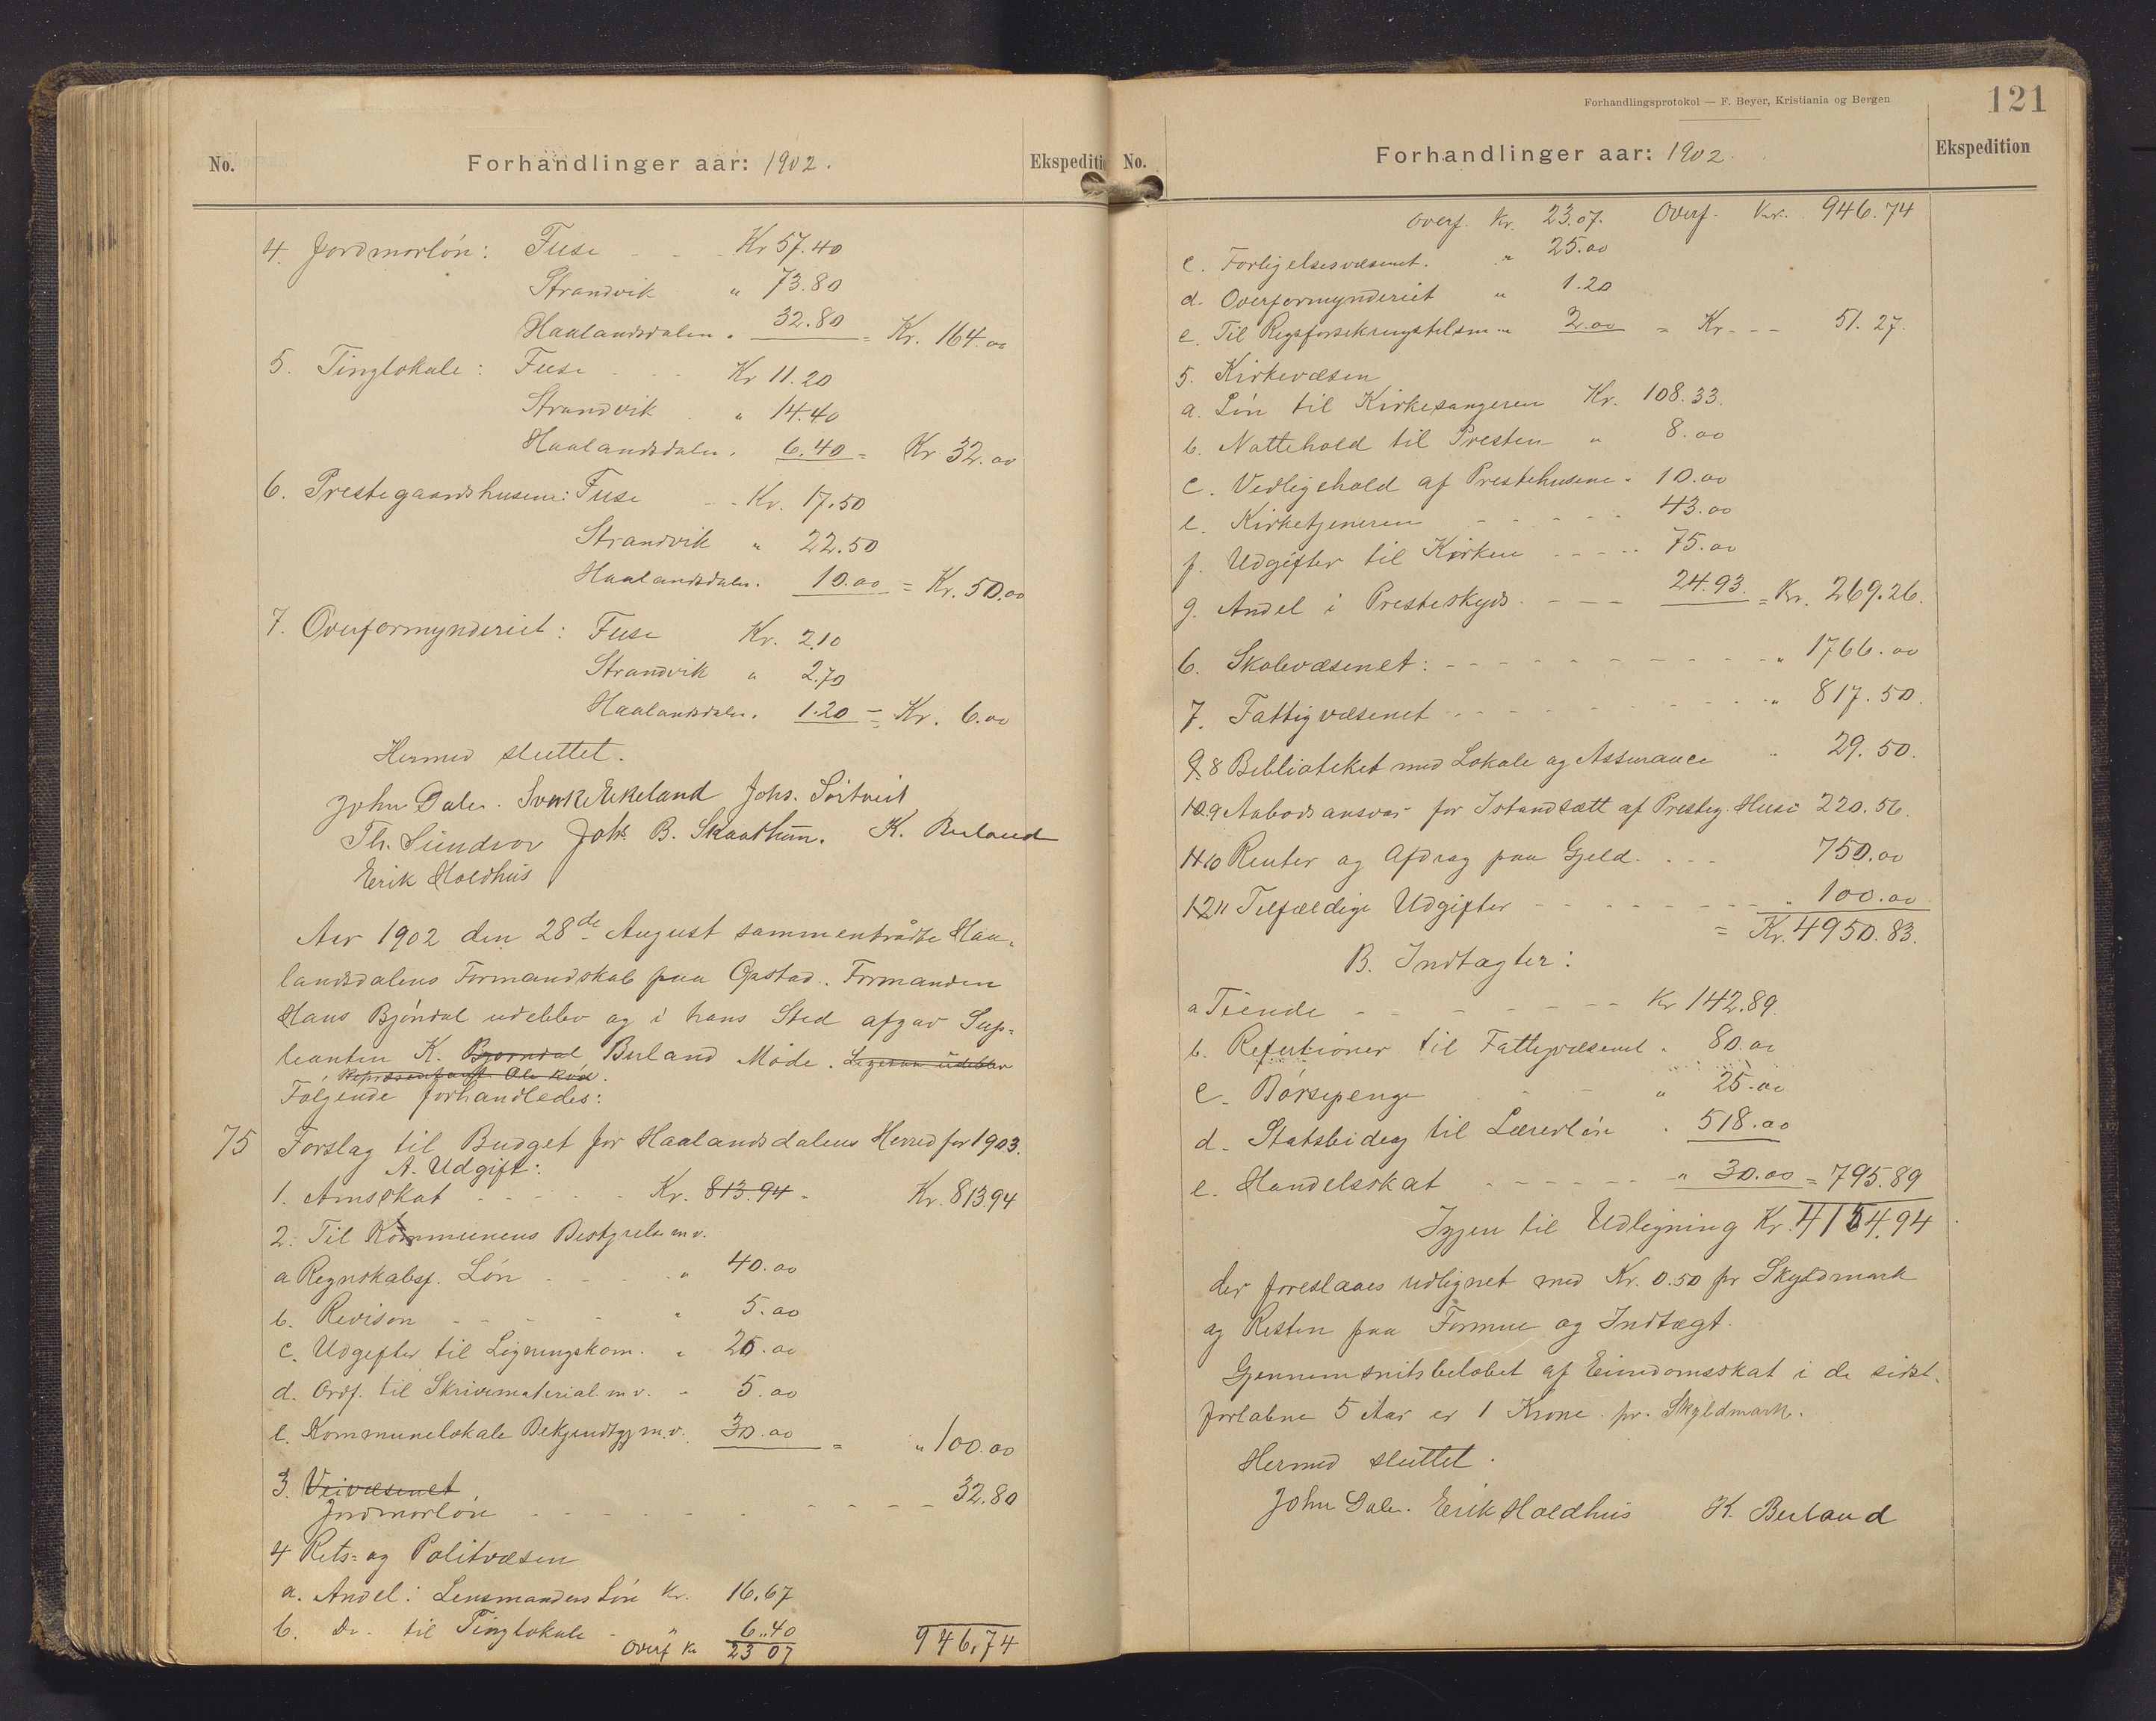 No. Forhandlinger aar: 1902. Ekspeditio
4. Jordmorløn: Fuse - - Kr 57.40
Strandvik " 73.80
Haalandsdalen " 32.80 = Kr. 164.00
5. Tinglokale: Fuse - - Kr 11.20
Strandvik " 14.40
Haalandsdalen " 6.40 = Kr 32.00
6. Prestegaardshusene: Fuse - - Kr. 17.50
Strandvik " 22.50
Haalandsdalen. 10.00 = Kr. 50.00
7. Overformynderiet: Fuse Kr. 2.10
Strandvik " 2.70
Haalandsdalen. 1.20 = Kr. 6.00
Hermed sluttet.
John Dale. Sverke Ekeland Johs. Sörtveit
Th. Sundvor Johs B. Skaathun. K. Berland
Erik Holdhus
Aar 1902 den 28de August sammentraadte Haa-
landsdalens Formandskab paa Opstad. Formanden
Hans Bjøndal udeblev og i hans Sted afgav Sup-
leanten K. Bjørndal Berland Møde. Ligesaa udeblev
Repræsentant Ole Rød.
Følgende forhandledes:
75 Forslag til Budget for Haalandsdalens Herred for 1903.
A. Udgift:
1. Amsskat - - - - - Kr. 813.94 - Kr. 813.94
2. Til Kommunens Bestyrelse m v.
a Regnskabsf. Løn - - - " 40.00
b. Revison - - - - " 5.00
c. Udgifter til Ligningskom. " 20.00
d. Ordf. til Skrivematerial. m v. " 5.00
e. Kommunelokale Bekjendtgj m.v. 30.00 = " 100.00
3. Veivæsenet
Jordmorløn - - - - - - - - - 32.80
4 Rets- og Politvæsen
a. Andel: Lensmandens Løn Kr. 16.67
b. Do. til Tinglokale - " 6.40
Overf Kr 23 07 946.74
Forhandlingsprotokol — F. Beyer, Kristiania og Bergen
121
No. Forhandlinger aar: 1902. Ekspedition
Overf. Kr. 23.07. Overf. Kr. 946.74
c. Forligelsesvæsenet. " 25.00
d. Overformynderiet " 1.20
e. Til 2.00 = Kr - - 51.27.
5. Kirkevæsen
a. Løn til Kirkesangeren Kr. 108.33.
b. Nattehold til Presten " 8.00
c. Vedligehold af Prestehusene " 10.00
e. Kirketjeneren - - - - - 43.00
f. Udgifter til Kirken - - - - - 75.00
g. Andel i Presteskyds. - - - 24.93. = Kr. 269.26.
6. Skolevæsenet: - - - - - - - - - - - " 1766.00
7. Fattigvæsenet - - - - - - - - - - - " 817.50.
9. 8 Biblioteket med Lokale og Assurance " 29.50.
10. 9 Aabodsansvar for Istandsætt af Presteg. Huse 220.56.
11. 10 Renter og Afdrag paa Gjeld. - - - 750.00
12 11 Tilfældige Udgifter - - - - - - - - - " 100.00
= Kr. 4950.83.
B. Indtægter:
a Tiende - - - - - - - Kr 142.89.
b. Refutioner til Fattigvæsenet " 80.00
c. Børsepenge - - " 25.00
d. Statsbidrag til Lærerløn " 518.00
e. Handelsskat - - - - - - - " 30.00 = 795.89
Igjen til Udligning Kr. 4154.94
der foreslaaes udlignet med Kr. 0.50 pr Skyldmark
og Resten paa Formue og Indtægt.
Gjennemsnitsbeløbet af Eiendomsskat i de sidst-
forløbne 5 Aar er 1 Krone pr. Skyldmark.
Hermed sluttet.
John Dale. Erik Holdhus K. Berland